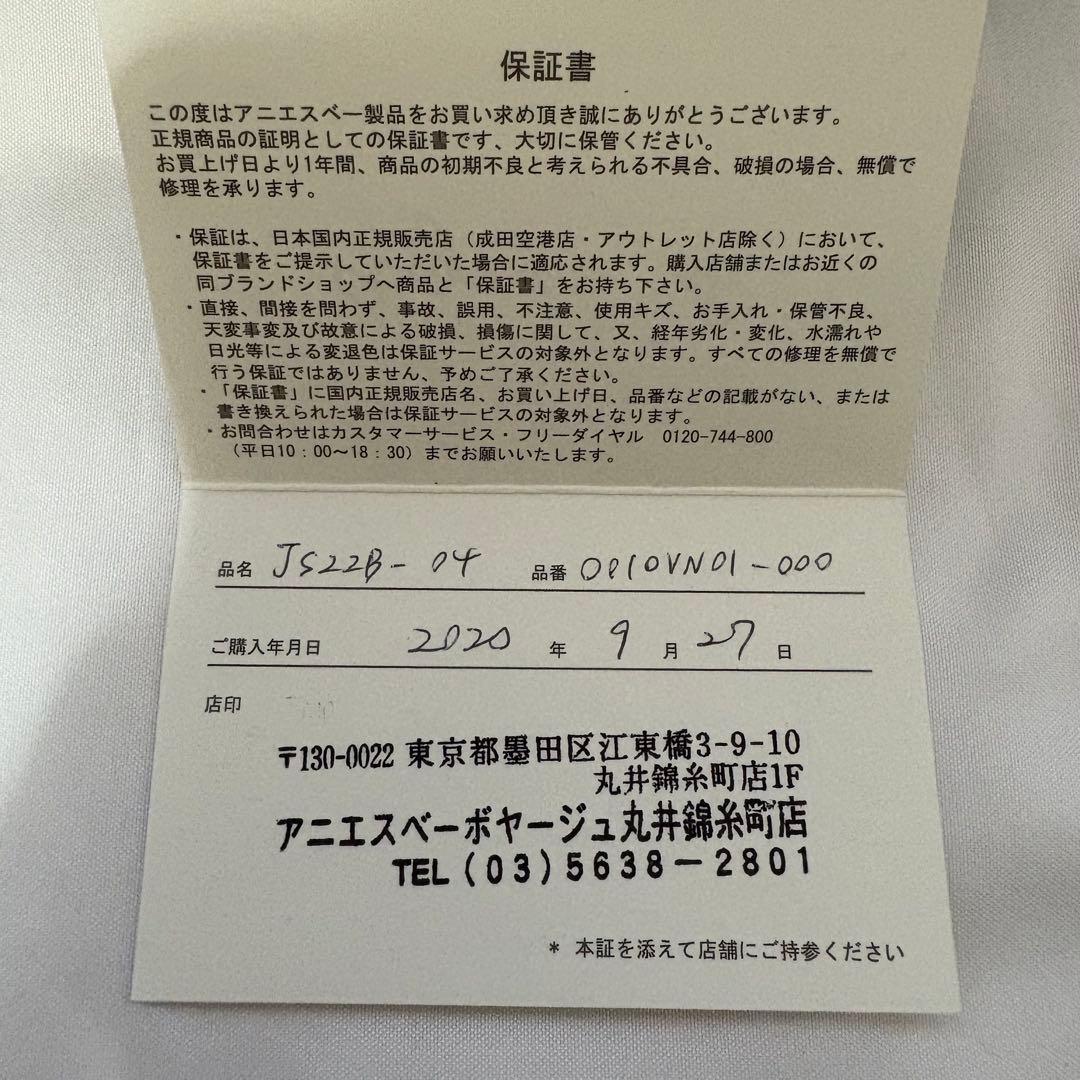 保証書
この度はアニエスベー製品をお買い求め頂き誠にありがとうございます。
正規商品の証明としての保証書です、大切に保管ください。
お買上げ日より1年間、商品の初期不良と考えられる不具合、破損の場合、無償で
修理を承ります。
・保証は、日本国内正規販売店（成田空港店・アウトレット店除く）において、
保証書をご提示していただいた場合に適応されます。購入店舗またはお近くの
同ブランドショップへ商品と「保証書」をお持ち下さい。
・直接、間接を問わず、事故、誤用、不注意、使用キズ、お手入れ・保管不良、
天変事変及び故意による破損、損傷に関して、又、経年劣化・変化、水濡れや
日光等による変退色は保証サービスの対象外となります。すべての修理を無償で
行う保証ではありません、予めご了承ください。
・「保証書」に国内正規販売店名、お買い上げ日、品番などの記載がない、または
書き換えられた場合は保証サービスの対象外となります。
・お問合わせはカスタマーサービス・フリーダイヤル 0120-744-800
（平日10：00〜18：30）までお願いいたします。
品名 JS22B-04 品番 0P10VN01-000
ご購入年月日 2020 年 9 月 27 日
店印
〒130-0022 東京都墨田区江東橋3-9-10
丸井錦糸町店1F
アニエスベーボヤージュ丸井錦糸町店
TEL(03)5638-2801
* 本証を添えて店舗にご持参ください